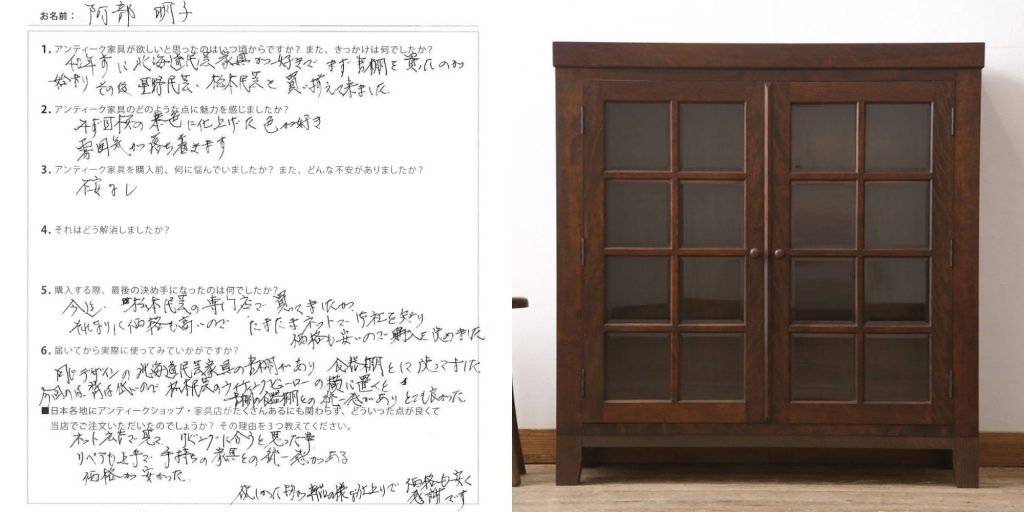 お名前： 阿部 明子
1. アンティーク家具が欲しいと思ったのはいつ頃からですか？ また、きっかけは何でしたか？
に北海道民芸家具が好きで まず書棚を買ったのが
始まり その後 民芸、松本民芸と買い揃えて来ました
2. アンティーク家具のどのような点に魅力を感じましたか？
に仕上げた色が好き
雰囲気が落ち着きます
3. アンティーク家具を購入前、何に悩んでいましたか？ また、どんな不安がありましたか？
不安なし
4. それはどう解消しましたか？
5. 購入する際、最後の決め手になったのは何でしたか？
今迄、松本民芸の専門店で買ってましたが
それなりに価格も高いので たまたまネットで御社を知り
価格も安いので 決めました
6. 届いてから実際に使ってみていかがですか？
同じデザインの北海道民芸家具の書棚があり 食器棚として使ってました
今回のは背は低いので 松本民芸の の横に置くと
統一感がありとても良かった
■日本各地にアンティークショップ・家具店がたくさんあるにも関わらず、どういった点が良くて
当店でご注文いただいたのでしょうか？ その理由を3つ教えてください。
ネット で見て、リビングに合うと思った事
リペアも上手で 手持ちの家具との統一感がある
価格が安かった
仕上りで 価格も安く
感謝です